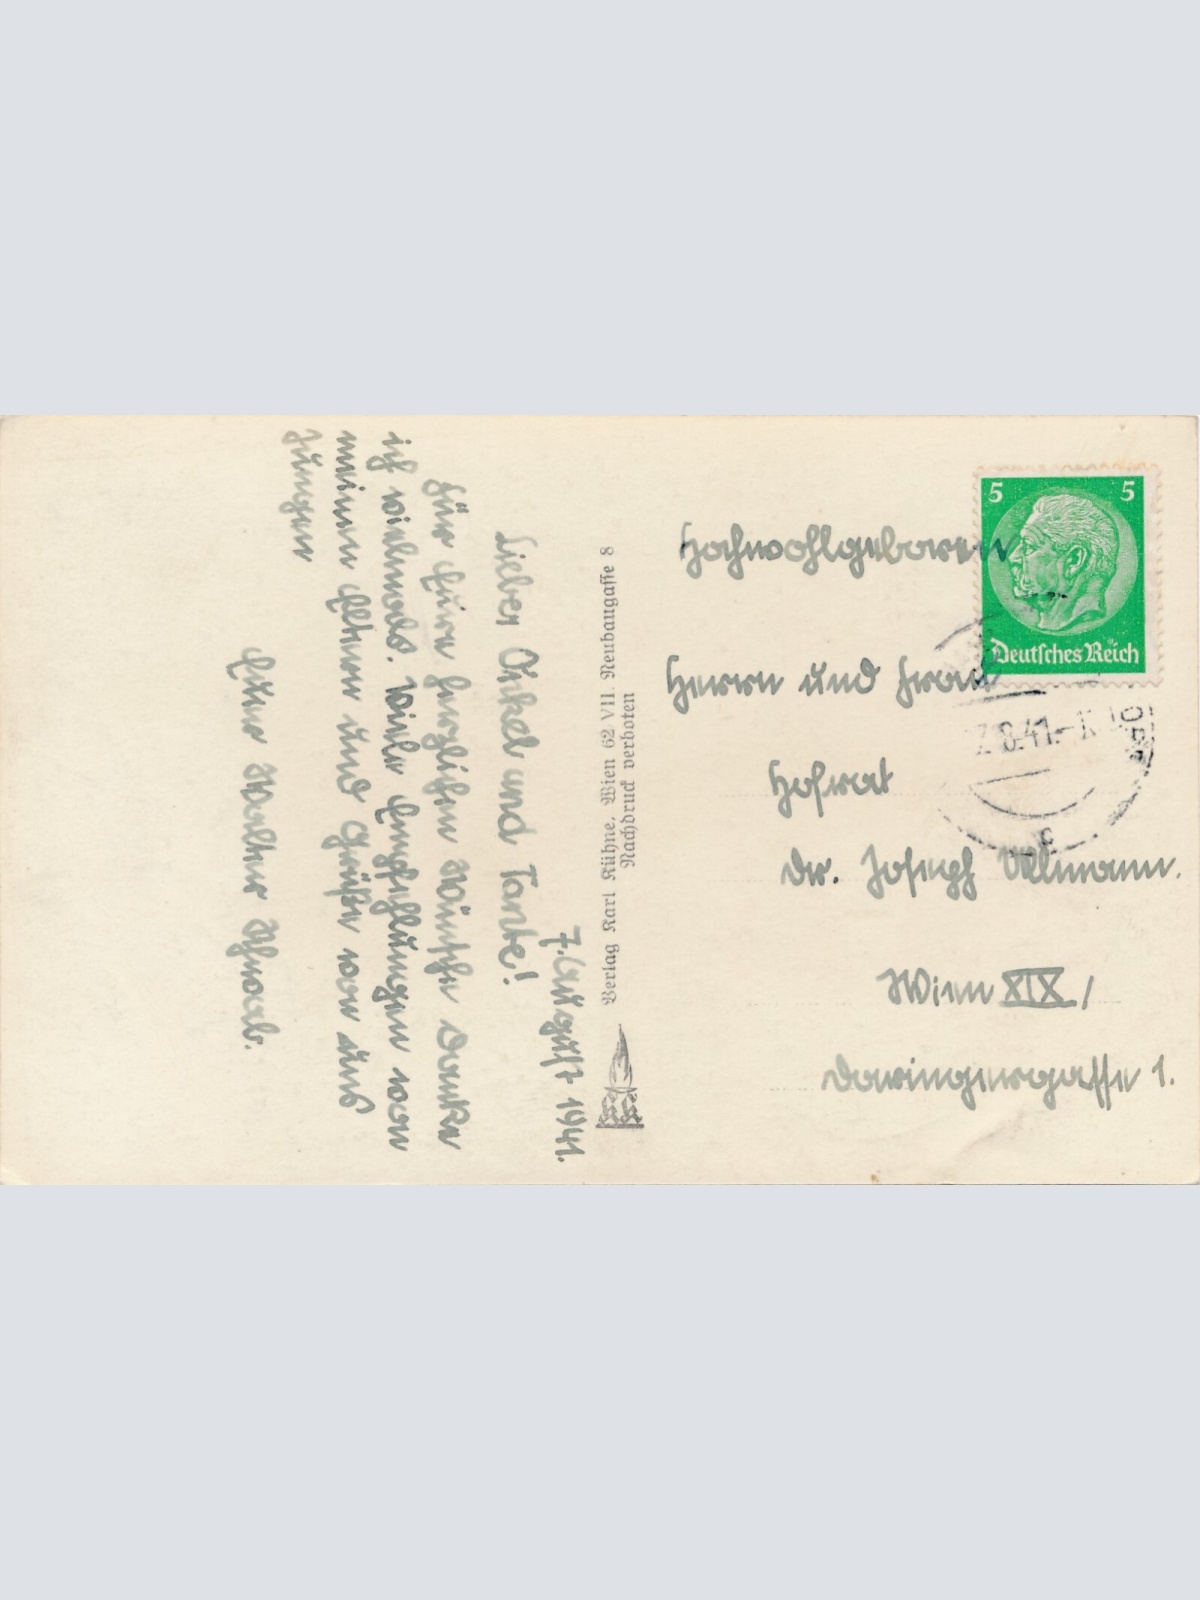 7. August 1941.
Lieber Onkel und Tante!
Für Eure herzlichen Wünsche danke
ich vielmals. Viele Empfehlungen von
meinen Eltern und Grüße von uns
Jungen
Euer Walter Schwab.
Verlag Karl Kühne, Wien 62 VII. Neubaugasse 8
Nachdruck verboten
5 5
Deutsches Reich
8.41.
c
Hochwohlgeboren
Herrn und Frau
Hofrat
Dr. Joseph Ullmann.
Wien XIX/
Daringergasse 1.